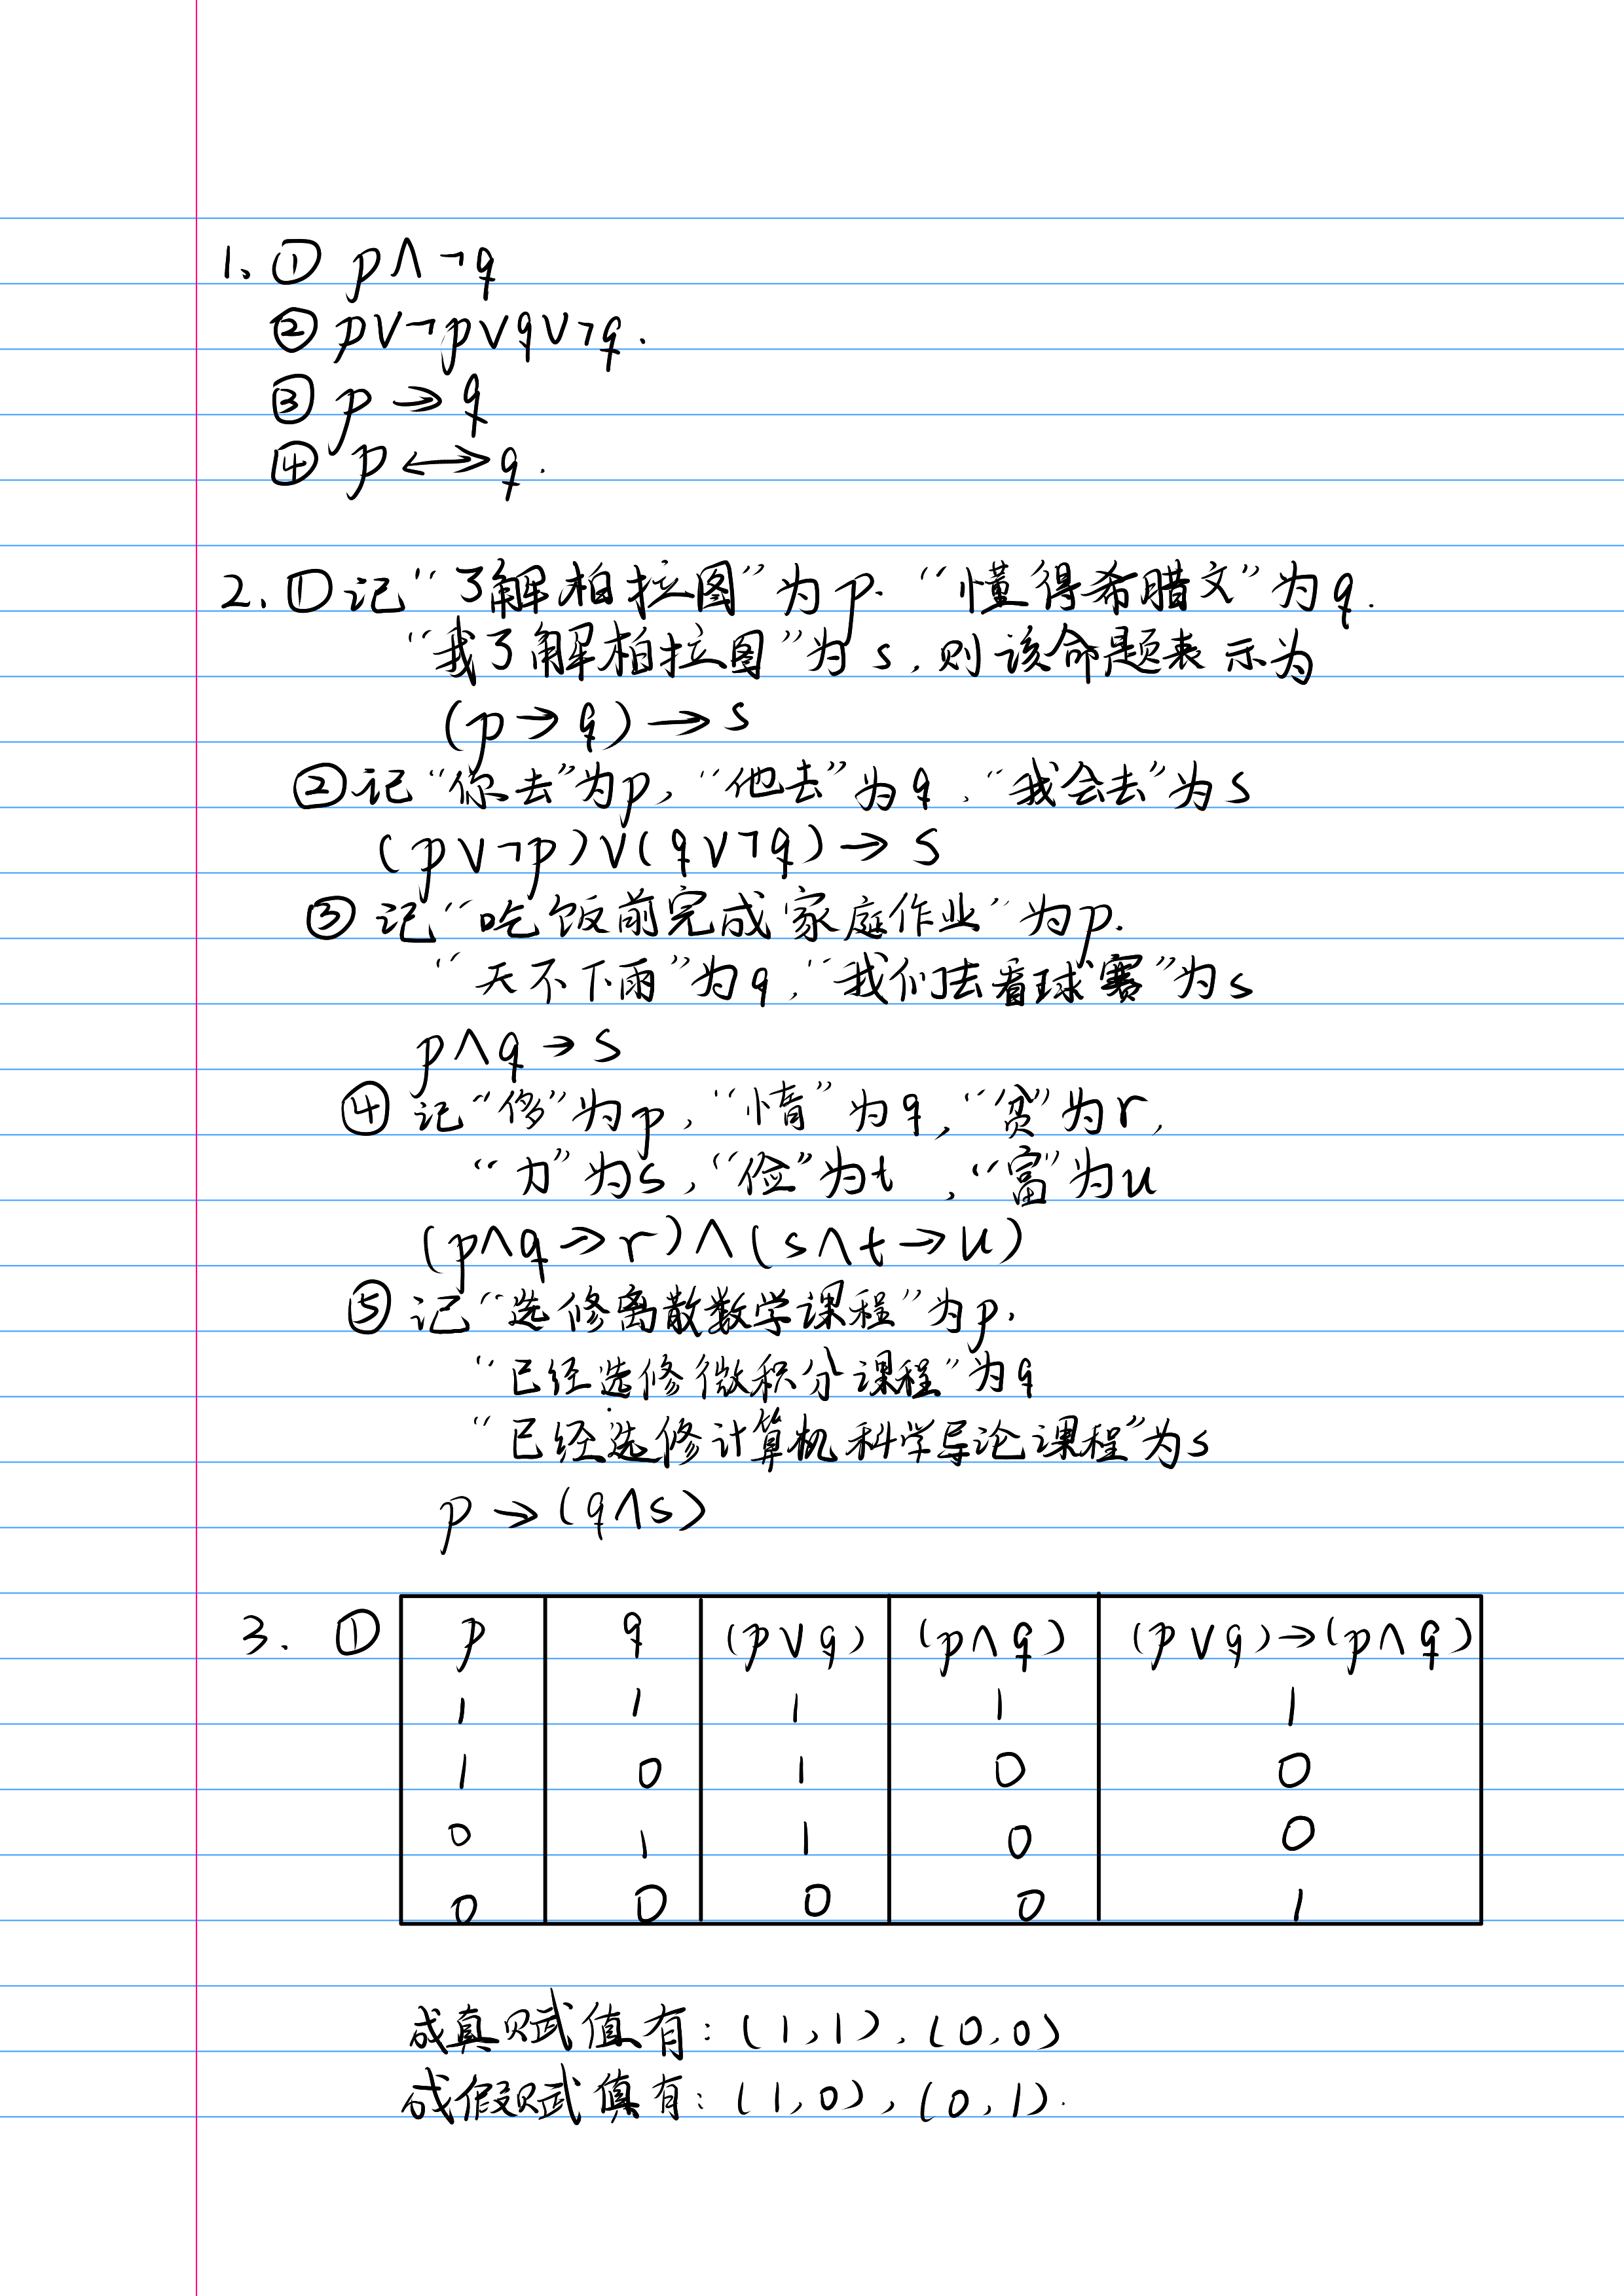 1. ① p∧¬q
② p∨¬p∨q∨¬q.
③ p→q
④ p↔q.
2. ①记“了解柏拉图”为p. “懂得希腊文”为q.
“我了解柏拉图”为s,则该命题表示为
(p→q)→s
②记“你去”为p, “他去”为q, “我会去”为s
(p∨¬p)∨(q∨¬q)→s
③ 记“吃饭前完成家庭作业”为p.
“天不下雨”为q, “我们去看球赛”为s
p∧q→s
④ 记“侈”为p, “惰”为q, “贫”为r,
“力”为s, “俭”为t , “富”为u
(p∧q→r)∧(s∧t→u)
⑤ 记“选修离散数学课程”为p.
“已经选修微积分课程”为q
“已经选修计算机科学导论课程”为s
p→(q∧s)
3. ① p q (p∨q) (p∧q) (p∨q)→(p∧q)
1 1 1 1 1
1 0 1 0 0
0 1 1 0 0
0 0 0 0 1
成真赋值有: (1,1), (0,0)
成假赋值有: (1,0), (0,1).